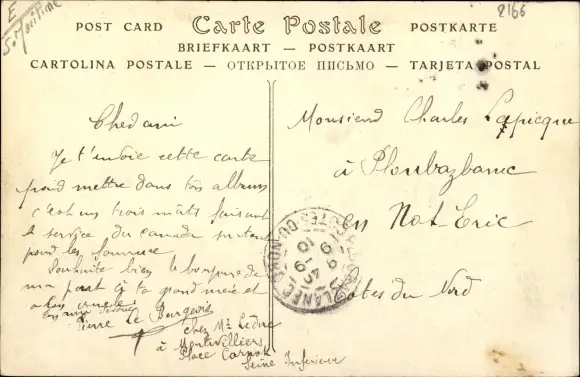 E
S. Maritime
2166
POST CARD Carte Postale POSTKARTE
BRIEFKAART — POSTKAART
CARTOLINA POSTALE — ОТКРЫТОЕ ПИСЬМО — TARJETA POSTAL
Cher ami
Je t'envoie cette carte
pour mettre dans ton album
c'est un trois mâts faisant
le service du Canada
pour les
Souhaite bien le bonjour de
ma part à ta grand mère et
à ton oncle
Ton ami dévoué
Pierre Le Bourgeois
chez Mr Leduc
à Montivilliers
Place Carnot
Seine Inferieure
Monsieur Charles Lapicque
à Ploubazlanec
en Not-Eric
Côtes du Nord
PLOUBAZLANEC
COTES-DU-NORD